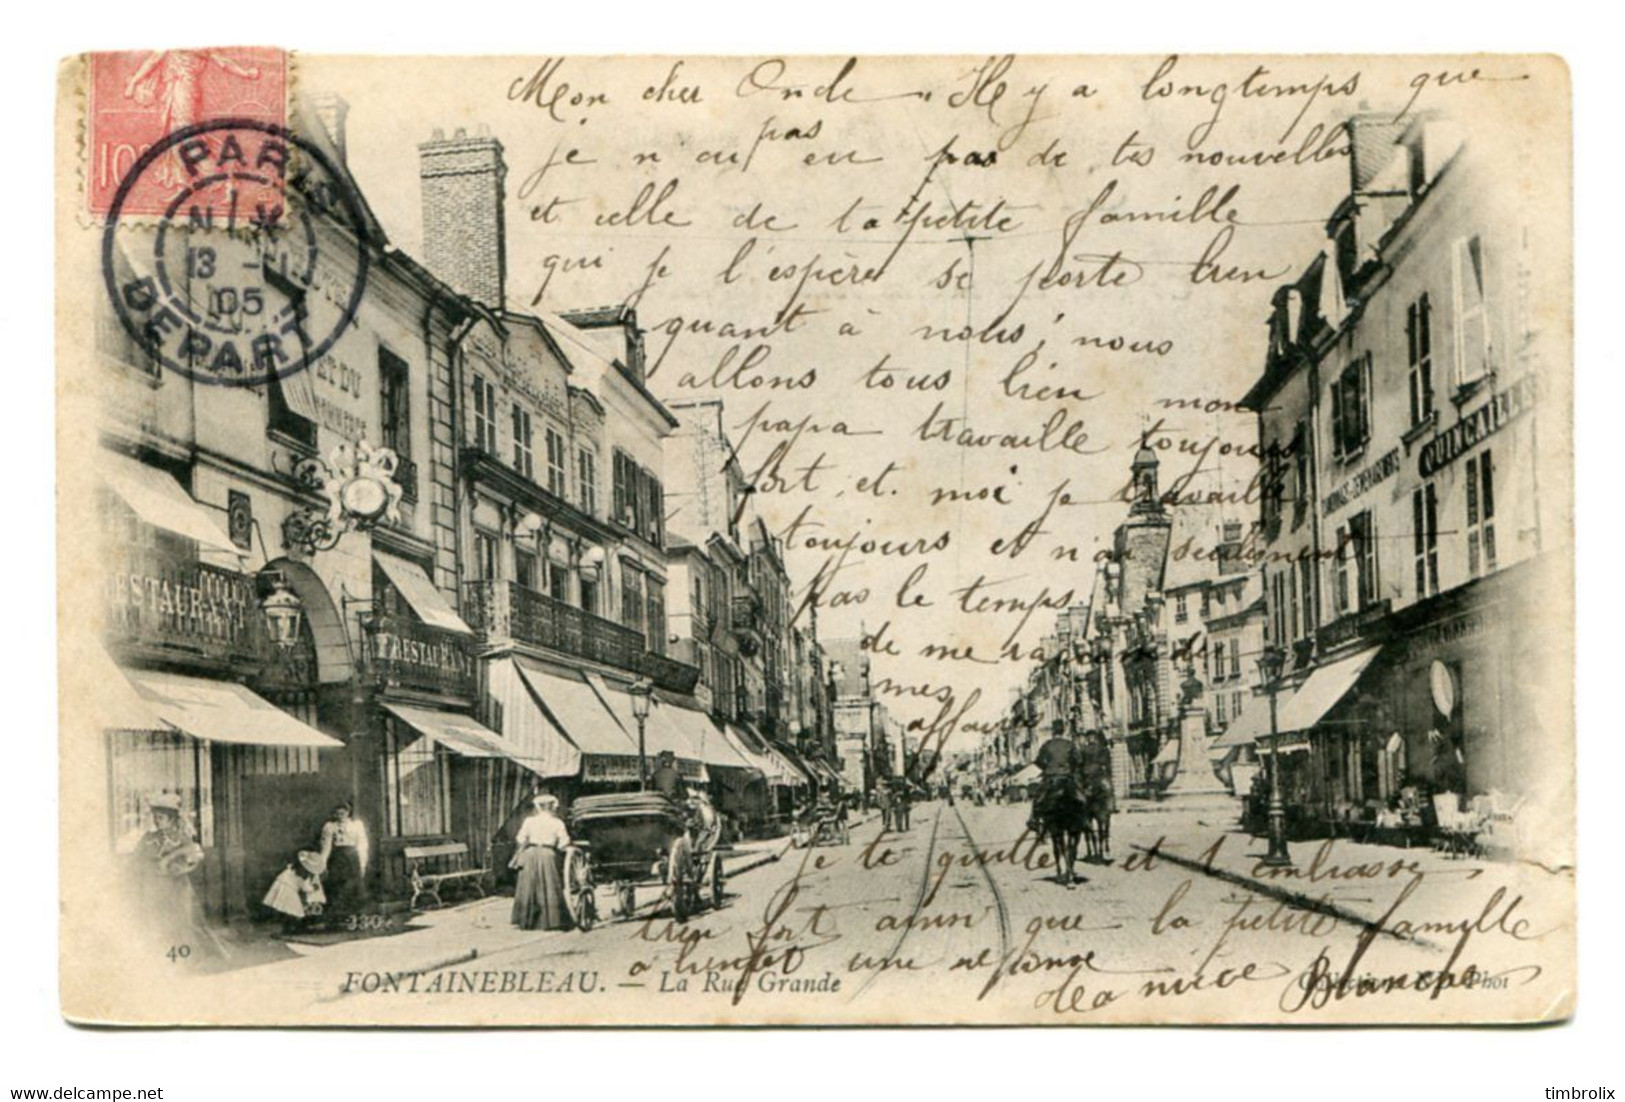 Mon cher Oncle Il y a longtemps que
pas
je n ai eu pas de tes nouvelles
et celle de ta petite famille
qui je l'espère se porte bien
quant à nous, nous
allons tous bien mon
papa travaille toujours
fort, et. moi je travaille
toujours et n'ai seulement
pas le temps
de me
mes
affaires
Je te quitte et t'embrasse
bien fort ainsi que la petite famille
a bientot une réponse
de ta nièce Blanche
10
PARIS
13
05
DEPART
ET DU
COMMERCE
RESTAURANT
RESTAURANT
QUINCAILLE
330
40
FONTAINEBLEAU. — La Rue Grande
Phot
delcampe.net
timbrolix